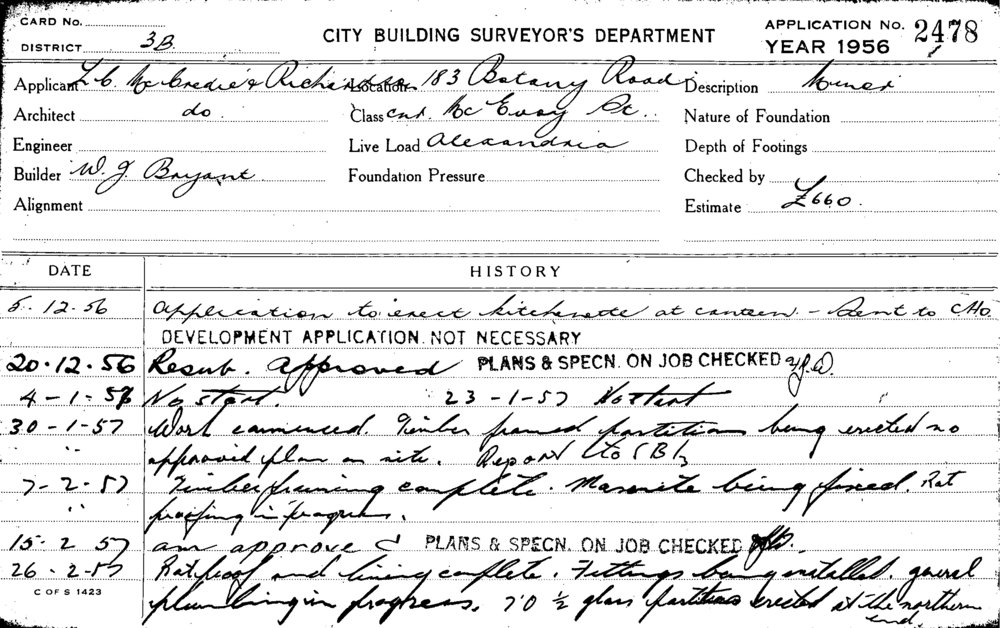 CARD No.
DISTRICT 3B
CITY BUILDING SURVEYOR'S DEPARTMENT
APPLICATION No. 2478
YEAR 1956
Applicant L. C. McCredie & Richardson Location 183 Botany Road Description Minor
Architect do. Class cnr. McEvoy St. Nature of Foundation
Engineer Live Load Alexandria Depth of Footings
Builder W. J. Bryant Foundation Pressure Checked by
Alignment Estimate £660.
DATE HISTORY
5.12.56 Application to erect kitchenette at canteen - Sent to CHO.
DEVELOPMENT APPLICATION NOT NECESSARY
20.12.56 Resub. Approved PLANS & SPECN. ON JOB CHECKED
4-1-57 No start. 23-1-57 No start
30-1-57 Work commenced. Timber framed partitions being erected no
" " approved plan on site. Report to
7-2-57 Timber framing complete. Masonite being fixed. Rat
" proofing in progress.
15.2.57 am approved PLANS & SPECN. ON JOB CHECKED
26-2-57 Ratproof and lining complete. Fittings being installed. general
C OF S 1423
plumbing in progress. 7'0 ½ glass partitions erected at the northern
end.